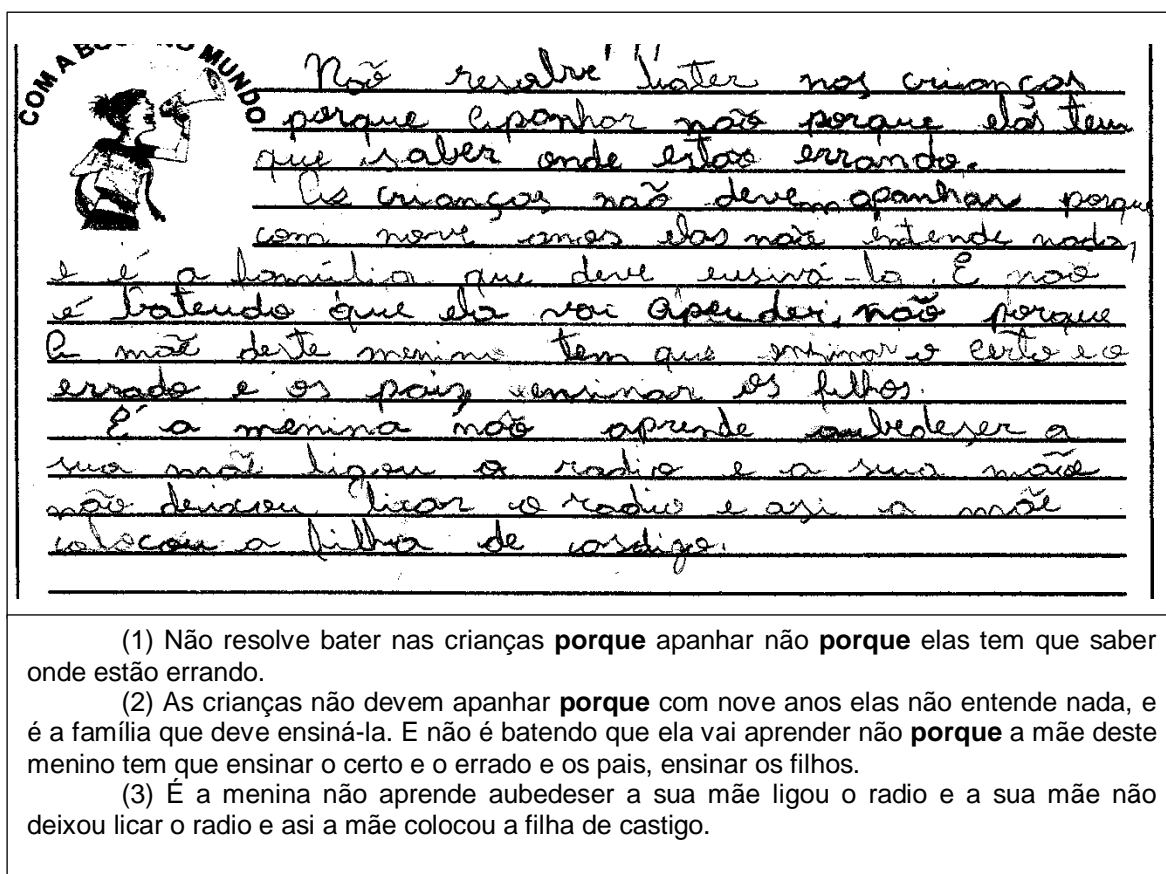 COM A BOCA NO MUNDO
Não resolve bater nas crianças
porque apanhar não porque elas tem
que saber onde estão errando.
As crianças não devem apanhar porque
com nove anos elas não entende nada,
e é a família que deve ensiná-la. E não
é batendo que ela vai apender, não porque
a mãe deste menino tem que ensinar o certo e o
errado e os pais, ensinar os filhos.
É a menina não aprende aubedeser a
sua mãe ligou o radio e a sua mãe
não deixou licar o radio e asi a mãe
colocou a filha de casdigo.
(1) Não resolve bater nas crianças porque apanhar não porque elas tem que saber
onde estão errando.
(2) As crianças não devem apanhar porque com nove anos elas não entende nada, e
é a família que deve ensiná-la. E não é batendo que ela vai aprender não porque a mãe deste
menino tem que ensinar o certo e o errado e os pais, ensinar os filhos.
(3) É a menina não aprende aubedeser a sua mãe ligou o radio e a sua mãe não
deixou licar o radio e asi a mãe colocou a filha de castigo.